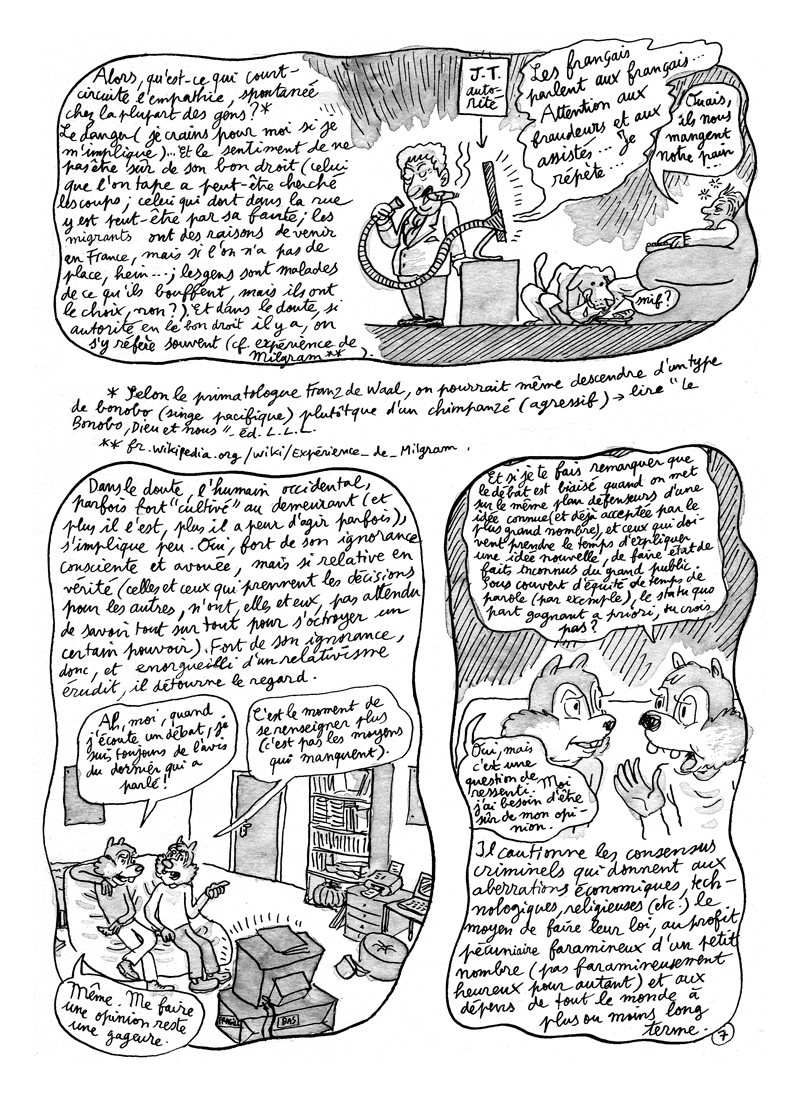 Alors, qu'est-ce qui court-
circuite l'empathie, spontanée
chez la plupart des gens ?*
Le danger (je crains pour moi si je
m'implique)... Et le sentiment de ne
pas être sûr de son bon droit (celui
que l'on tape a peut-être cherché
les coups ; celui qui dort dans la rue
y est peut-être par sa faute ; les
migrants ont des raisons de venir
en France, mais si l'on n'a pas de
place, hein... ; les gens sont malades
de ce qu'ils bouffent, mais ils ont
le choix, non ?). Et dans le doute, si
autorité en le bon droit il y a, on
s'y réfère souvent (cf. expérience de
Milgram**).
J.T.
auto-
rité
Les français
parlent aux français...
Attention aux
fraudeurs et aux
assistés... Je
répète...
Ouais,
ils nous
mangent
notre pain
snif ?
* Selon le primatologue Franz de Waal, on pourrait même descendre d'un type
de bonobo (singe pacifique) plutôt que d'un chimpanzé (agressif) → lire "Le
Bonobo, Dieu et nous" - éd. L.L.L.
** fr.wikipedia.org/wiki/Expérience_de_Milgram.
Dans le doute, l'humain occidental,
parfois fort "cultivé" au demeurant (et
plus il l'est, plus il a peur d'agir parfois),
s'implique peu. Oui, fort de son ignorance
consciente et avouée, mais si relative en
vérité (celles et ceux qui prennent les décisions
pour les autres, n'ont, elles et eux, pas attendu
de savoir tout sur tout pour s'octroyer un
certain pouvoir). Fort de son ignorance,
donc, et enorgueilli d'un relativisme
érudit, il détourne le regard.
Ah, moi, quand
j'écoute un débat, je
suis toujours de l'avis
du dernier qui a
parlé !
C'est le moment de
se renseigner plus
(c'est pas les moyens
qui manquent).
Même. Me faire
une opinion reste
une gageure.
FRAGILE
BAS
Et si je te fais remarquer que
le débat est biaisé quand on met
sur le même plan défenseurs d'une
idée connue (et déjà acceptée par le
plus grand nombre), et ceux qui doi-
vent prendre le temps d'expliquer
une idée nouvelle, de faire état de
faits inconnus du grand public.
Sous couvert d'équité de temps de
parole (par exemple), le statu quo
part gagnant a priori, tu crois
pas ?
Oui, mais
c'est une
question de
ressenti. Moi
j'ai besoin d'être
sûr de mon opi-
nion.
Il cautionne les consensus
criminels qui donnent aux
aberrations économiques, tech-
nologiques, religieuses (etc.) le
moyen de faire leur loi, au profit
pécuniaire faramineux d'un petit
nombre (pas faramineusement
heureux pour autant) et aux
dépens de tout le monde à
plus ou moins long
terme.
7